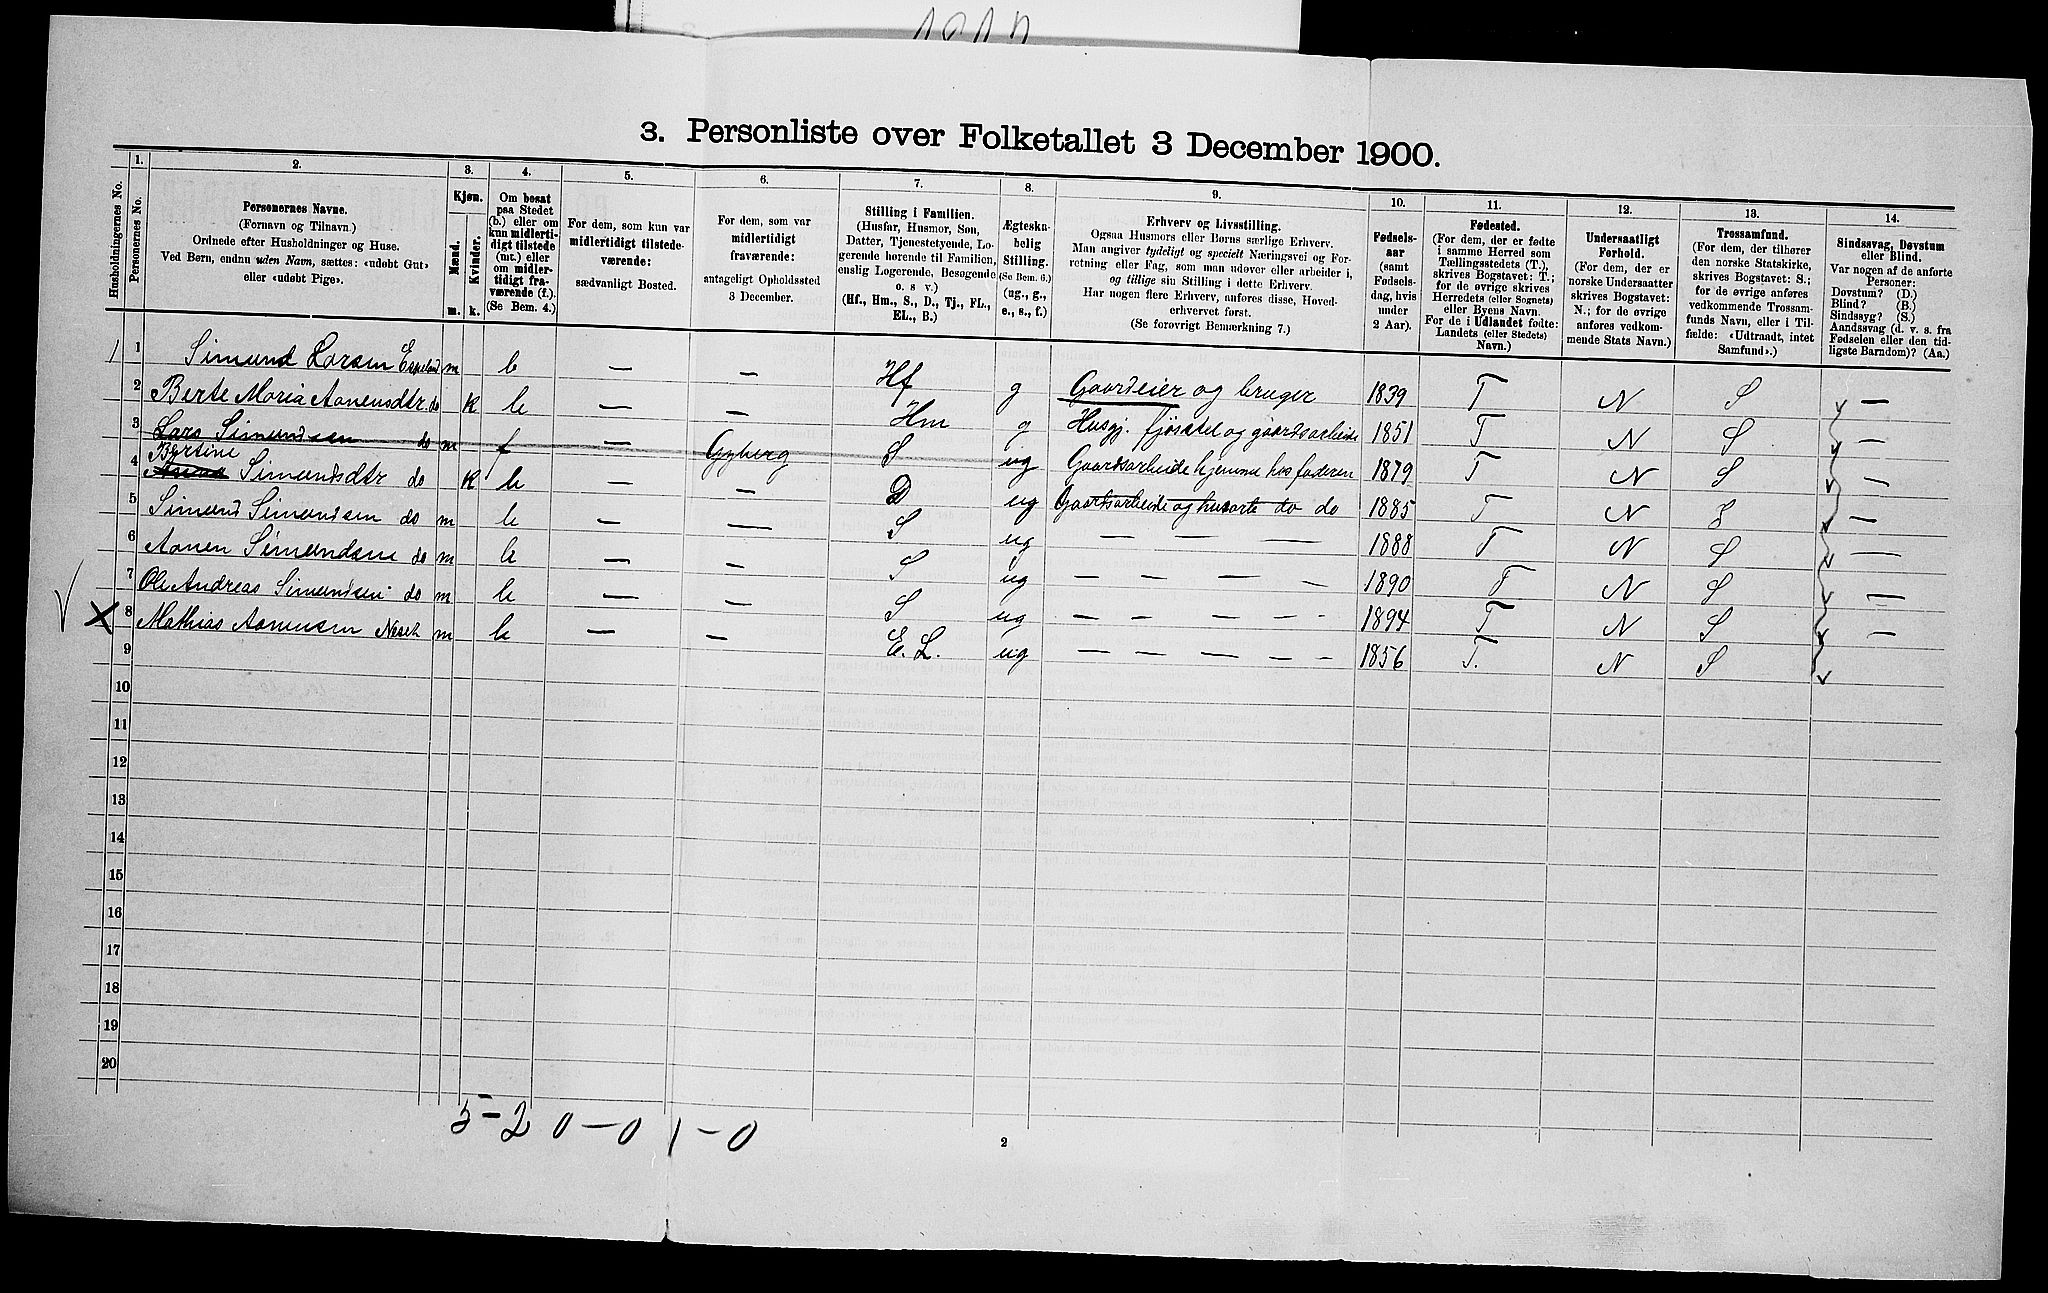 3. Personliste over Folketallet 3 December 1900.
Husholdningernes No.
1.
Personernes No.
2.
Personernes Navne.
(Fornavn og Tilnavn.)
Ordnede efter Husholdninger og Huse.
Ved Børn, endnu uden Navn, sættes: «udøbt Gut»
eller «udøbt Pige».
3.
Kjøn.
Mænd.
Kvinder.
m.
k.
4.
Om bosat
paa Stedet
(b.) eller om
kun midlerti-
digt tilstede
(mt.) eller
om midler-
tidigt fra-
værende (f.).
(Se Bem. 4.)
5.
For dem, som kun var
midlertidigt tilstede-
værende:
sædvanligt Bosted.
6.
For dem, som var
midlertidigt
fraværende:
antageligt Opholdssted
3 December.
7.
Stilling i Familien.
(Husfar, Husmor, Søn,
Datter, Tjenestetyende, Lo-
gerende hørende til Familien,
enslig Logerende, Besøgende
o. s v.)
(Hf., Hm., S., D., Tj., FL.,
EL., B.)
8.
Ægteska-
belig
Stilling.
(Se Bem. 6.)
(ug., g.,
e., s., f.)
9.
Erhverv og Livsstilling.
Ogsaa Husmors eller Børns særlige Erhverv.
Man angiver tydeligt og specielt Næringsvei og For-
retning eller Fag, som man udøver eller arbeider i,
og tillige sin Stilling i dette Erhverv.
Har nogen flere Erhverv, anføres disse, Hoved-
erhvervet først.
(Se forøvrigt Bemærkning 7.)
10.
Fødsels-
aar
(samt
Fødsels-
dag, hvis
under
2 Aar).
11.
Fødested.
(For dem, der er fødte
i samme Herred som
Tællingsstedets (T.),
skrives Bogstavet: T.;
for de øvrige skrives
Herredets (eller Sognets)
eller Byens Navn.
For de i Udlandet fødte:
Landets (eller Stedets)
Navn.)
12.
Undersaatligt
Forhold.
(For dem, der er
norske Undersaatter
skrives Bogstavet:
N.; for de øvrige
anføres vedkom-
mende Stats Navn.)
13.
Trossamfund.
(For dem, der tilhører
den norske Statskirke,
skrives Bogstavet: S.;
for de øvrige anføres
vedkommende Trossam-
funds Navn, eller i Til-
fælde: «Udtraadt, intet
Samfund».)
14.
Sindssvag, Døvstum
eller Blind.
Var nogen af de anførte
Personer:
Døvstum? (D.)
Blind? (B.)
Sindssyg? (S.)
Aandssvag (d. v. s. fra
Fødselen eller den tid-
ligste Barndom)? (Aa.)
1 1 Simund Larsen Espeland m b — — Hf g Gaardeier og bruger 1839 T N S —
2 Berte Maria Aanensdtr. do k b — — Hm g Husgj. fjøsstel og gaardsarbeide 1851 T N S —
3 Lars Simundsen do m f — Gyberg S ug Gaardsarbeide hjemme hos faderen 1879 T N S —
4 Bertine Simundsdtr do k b — — D ug Gaardsarbeide og husarb. do do 1885 T N S —
5 Simund Simundsen do m b — — S ug — — — 1888 T N S —
6 Aanen Simundsen do m b — — S ug — — — - 1890 T N S —
7 Ole Andreas Simundsen do m b — — S ug — — — - - 1894 T N S —
X 8 Mathias Aanensen m b — — E. L. ug — — — - - 1856 T. N S
9
10
11
12
13
14
15
16
17
18
19
20
5-2 0-0 1-0
2